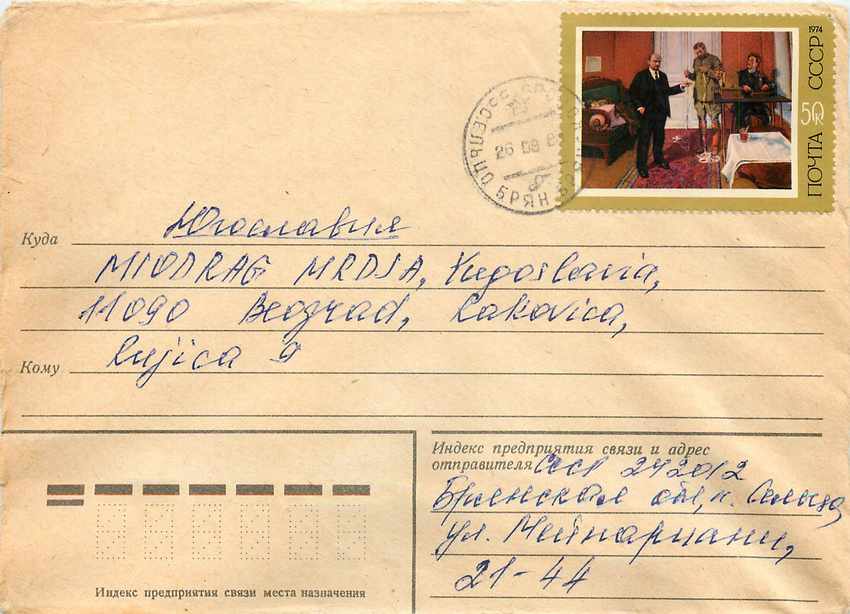 1974
ПОЧТА СССР
50к
СССР
БРЯНСК
26 09 8
Югославия
Куда
MIODRAG MRDJA, Yugoslavia,
11090 Beograd, Rakovica,
Кому
Lujica 9
Индекс предприятия связи и адрес
отправителя СССР 242012
Брянская обл., п.
ул.
21-44
Индекс предприятия связи места назначения